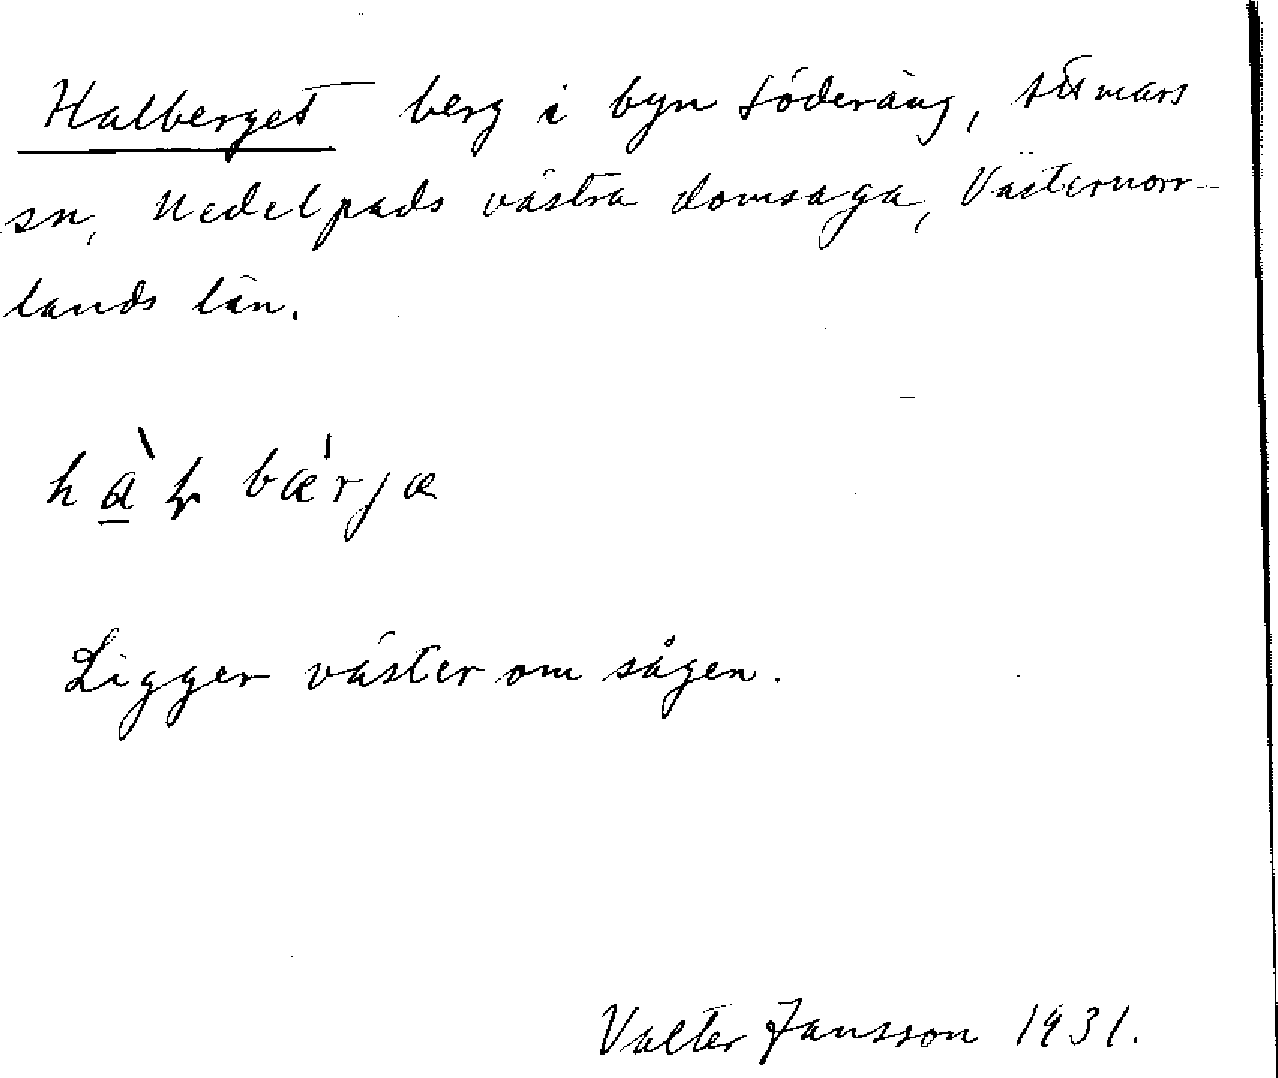 Halberget berg i byn Söderäng, Attmars
sn, Medelpads västra domsaga, Västernorr-
lands län.
hàḷ bæ'rjæ
Ligger väster om sågen.
Valter Jansson 1931.